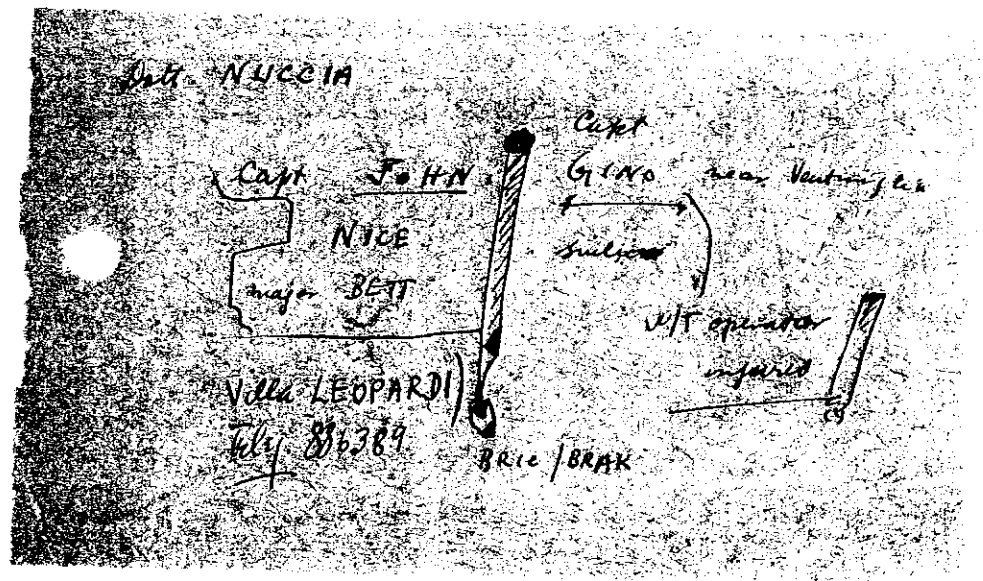 Dott. NUCCIA
Capt JOHN
NICE
major BETT
Villa LEOPARDI)
Tely 886389
Capt
GINO near
W/T operator
injured
BRIC/BRAK